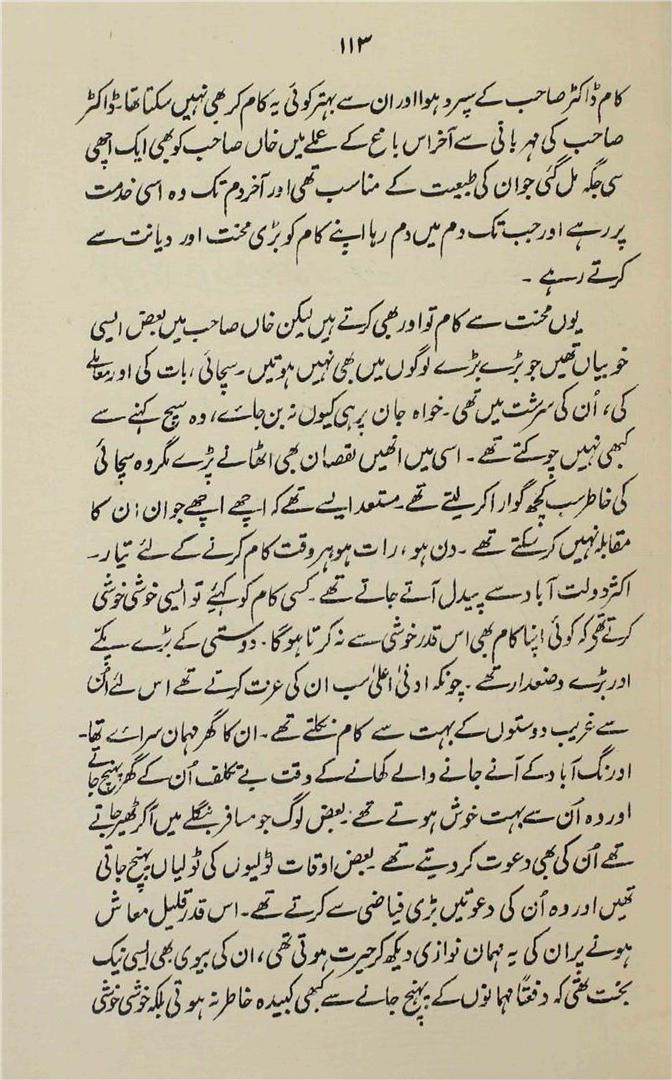 ۱۱۳
کام ڈاکٹر صاحب کے سپرد ہوا اور ان سے بہتر کوئی یہ کام کر بھی نہیں سکتا تھا۔ ڈاکٹر
صاحب کی مہربانی سے آخر اس باغ کے عملے میں خاں صاحب کو بھی ایک اچھی
سی جگہ مل گئی جو ان کی طبیعت کے مناسب تھی اور آخر دم تک وہ اسی خدمت
پر رہے اور جب تک دم میں دم رہا اپنے کام کو بڑی محنت اور دیانت سے
کرتے رہے ۔
یوں محنت سے کام تو اور بھی کرتے ہیں لیکن خاں صاحب میں بعض ایسی
خوبیاں تھیں جو بڑے بڑے لوگوں میں بھی نہیں ہوتیں ۔ سچائی ، بات کی اور معاملے
کی ، اُن کی سرشت میں تھی ۔ خواہ جان پر ہی کیوں نہ بن جائے ، وہ سچ کہنے سے
کبھی نہیں چوکتے تھے ۔ اسی میں انھیں نقصان بھی اٹھانے پڑے مگر وہ سچائی
کی خاطر سب کچھ گوارا کر لیتے تھے ۔ مستعد ایسے تھے کہ اچھے اچھے جوان ان کا
مقابلہ نہیں کر سکتے تھے ۔ دن ہو ، رات ہو ہر وقت کام کرنے کے لئے تیار ۔
اکثر دولت آباد سے پیدل آتے جاتے تھے ۔ کسی کام کو کہئے تو ایسی خوشی خوشی
کرتے تھے کہ کوئی اپنا کام بھی اس قدر خوشی سے نہ کرتا ہوگا ۔ دوستی کے بڑے پکے
اور بڑے وضعدار تھے ۔ چونکہ ادنیٰ اعلیٰ سب ان کی عزت کرتے تھے اس لئے اُن
سے غریب دوستوں کے بہت سے کام نکلتے تھے ۔ ان کا گھر مہمان سرائے تھا ۔
اورنگ آباد کے آنے جانے والے کھانے کے وقت بے تکلف اُن کے گھر پہنچ جاتے
اور وہ اُن سے بہت خوش ہوتے تھے ۔ بعض لوگ جو مسافر بنگلے میں آکر ٹھیر جاتے
تھے اُن کی بھی دعوت کر دیتے تھے ۔ بعض اوقات ٹولیوں کی ٹولیاں پہنچ جاتی
تھیں اور وہ اُن کی دعوتیں بڑی فیاضی سے کرتے تھے ۔ اس قدر قلیل معاش
ہونے پر ان کی یہ مہمان نوازی دیکھ کر حیرت ہوتی تھی ، ان کی بیوی بھی ایسی نیک
بخت تھی کہ دفعتاً مہمانوں کے پہنچ جانے سے کبھی کبیدہ خاطر نہ ہوتی بلکہ خوشی خوشی